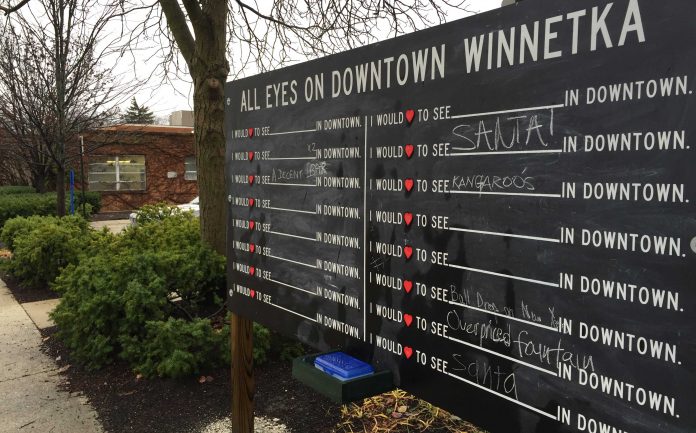 ALL EYES ON DOWNTOWN WINNETKA
I WOULD ♥ TO SEE IN DOWNTOWN.
I WOULD ♥ TO SEE x2 IN DOWNTOWN.
I WOULD ♥ TO SEE A DECENT IN DOWNTOWN.
I WOULD ♥ TO SEE IN DOWNTOWN.
I WOULD ♥ TO SEE IN DOWNTOWN.
I WOULD ♥ TO SEE IN DOWNTOWN.
I WOULD ♥ TO SEE IN DOWNTOWN.
I WOULD ♥ TO SEE IN DOWNTOWN.
I WOULD ♥ TO SEE IN DOWNTOWN.
I WOULD ♥ TO SEE SANTA! IN DOWNTOWN.
I WOULD ♥ TO SEE KANGAROO'S IN DOWNTOWN.
I WOULD ♥ TO SEE IN DOWNTOWN.
I WOULD ♥ TO SEE IN DOWNTOWN.
I WOULD ♥ TO SEE Ball Drop on New IN DOWNTOWN.
I WOULD ♥ TO SEE Overpriced fountain IN DOWNTOWN.
I WOULD ♥ TO SEE Santa IN DOWNTOWN.